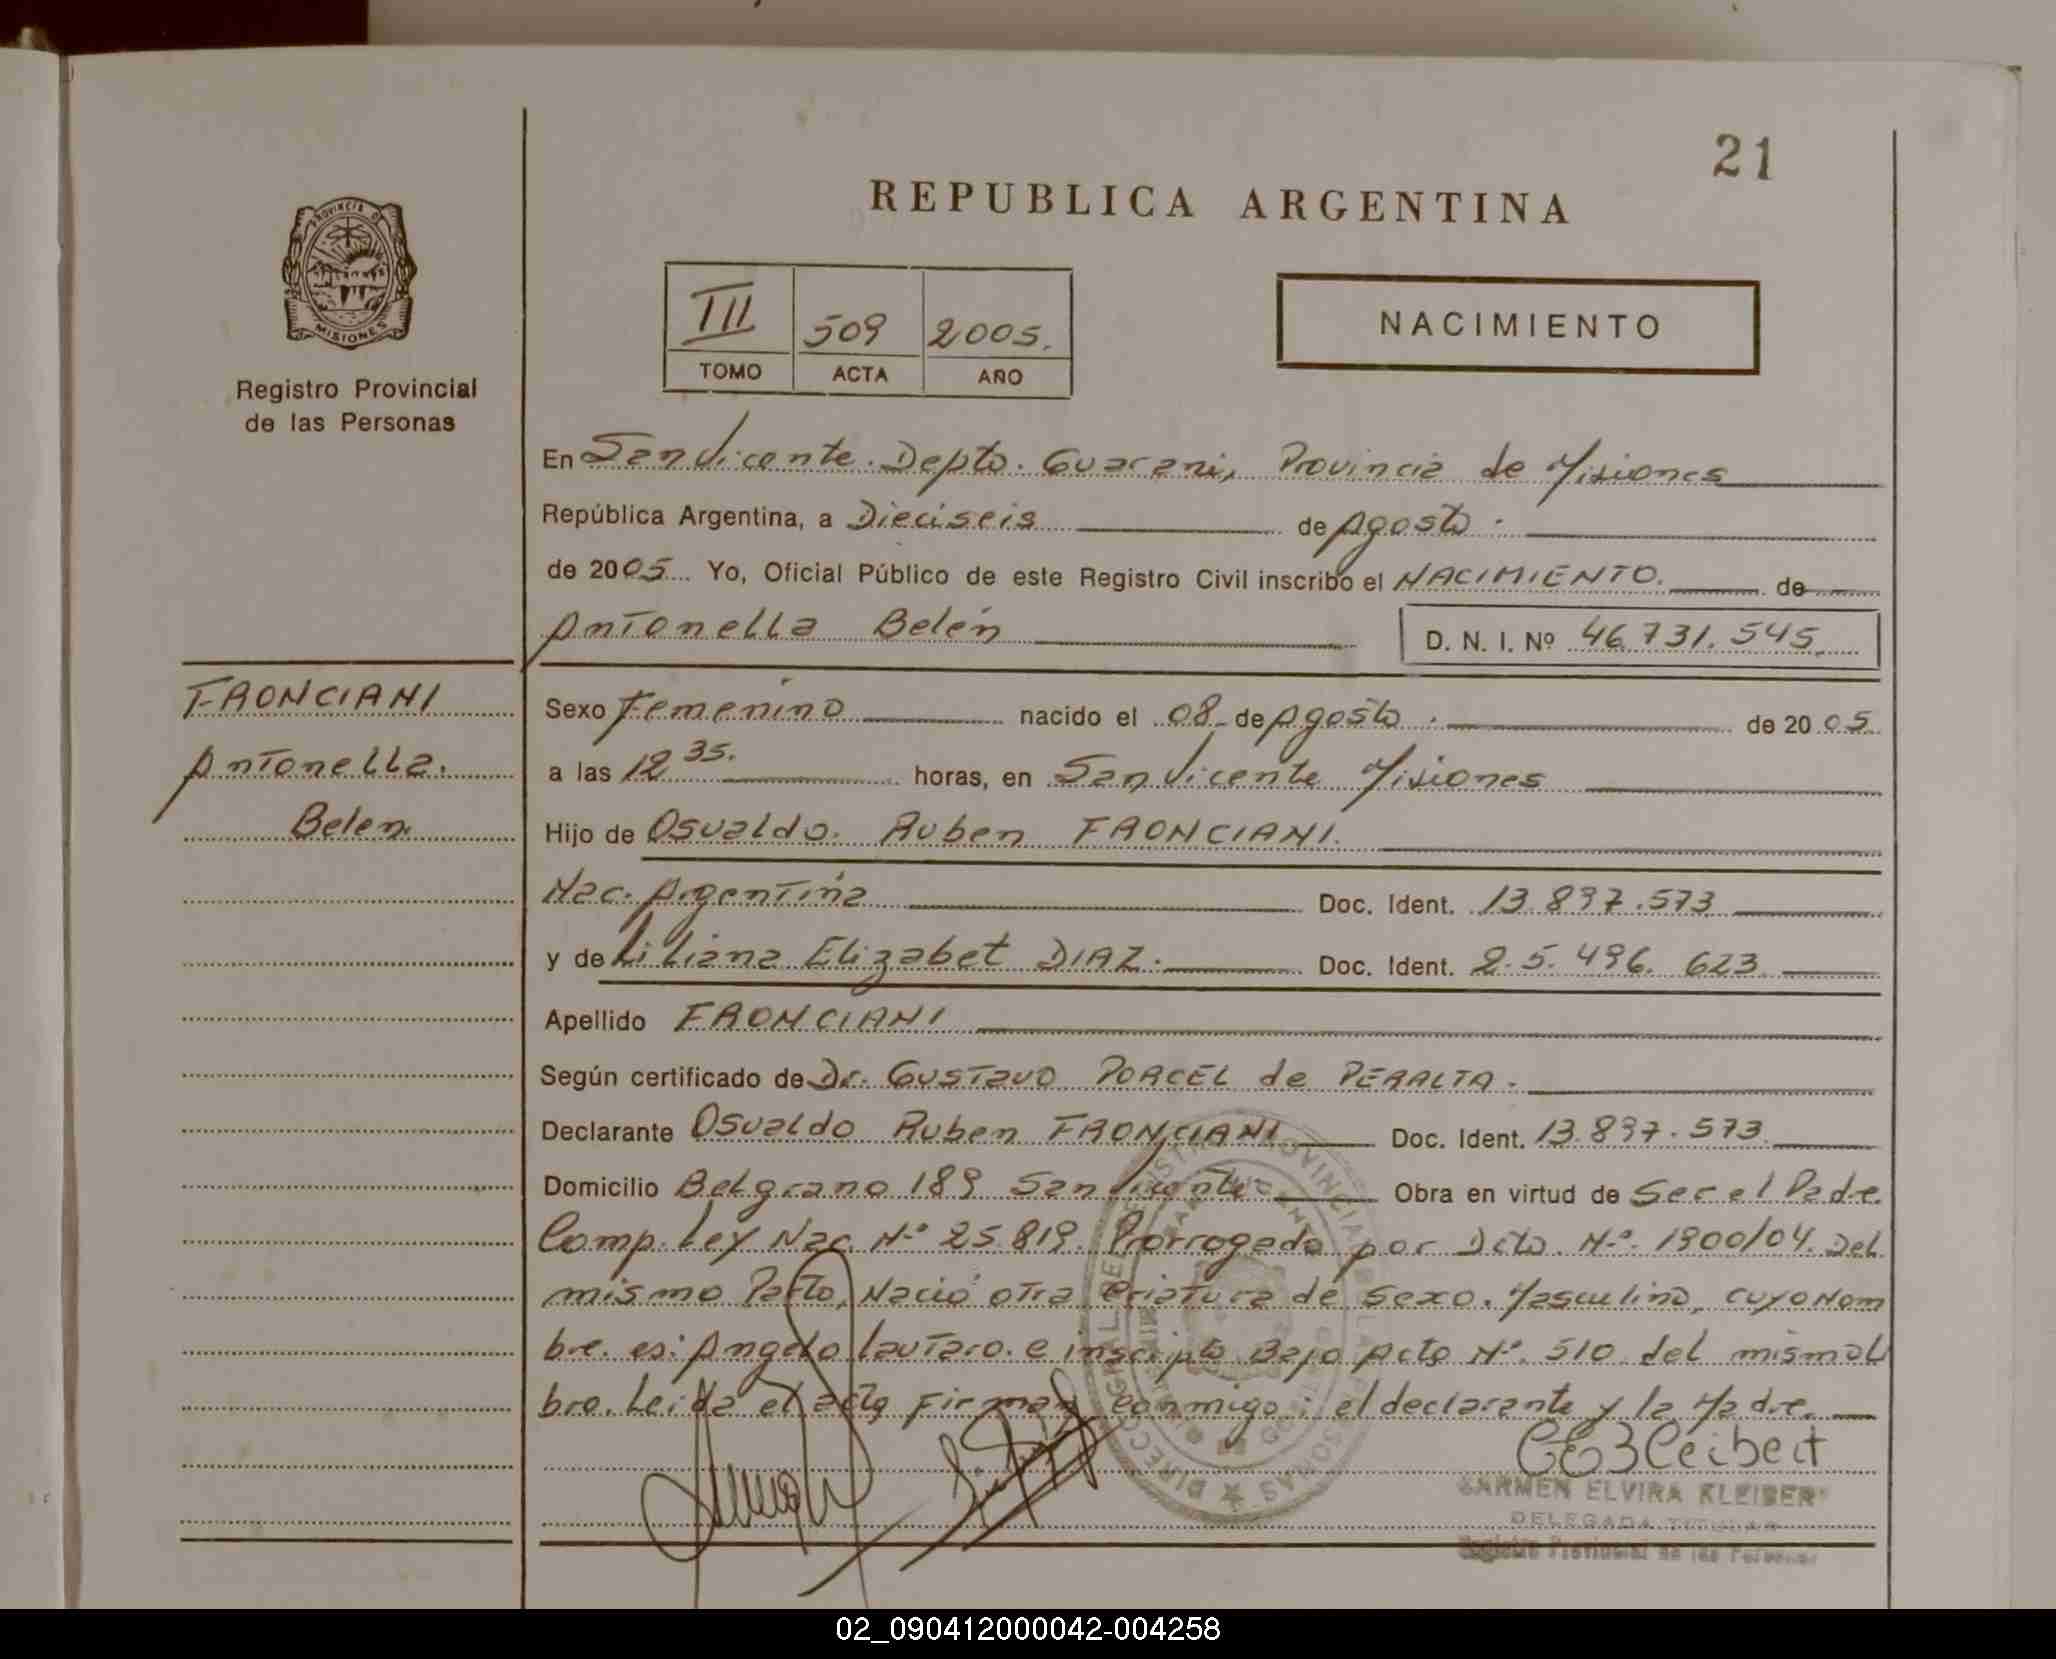 21
REPUBLICA ARGENTINA
PROVINCIA DE
MISIONES
Registro Provincial
de las Personas
III 509 2005.
TOMO ACTA AÑO
NACIMIENTO
En San Vicente. Depto. Guarani, Provincia de Misiones
República Argentina, a Dieciseis de Agosto.
de 2005 Yo, Oficial Público de este Registro Civil inscribo el NACIMIENTO. de
Antonella Belén D. N. I. Nº 46.731.545.
FRONCIANI
Antonella.
Belen.
Sexo Femenino nacido el 08 de Agosto. de 2005
a las 12 35. horas, en San Vicente Misiones
Hijo de Osvaldo. Ruben FRONCIANI.
Nac. Argentina Doc. Ident. 13.897.573
y de Liliana Elizabet DIAZ. Doc. Ident. 25.496.623
Apellido FRONCIANI
Según certificado de Dr. GUSTAVO PORCEL de PERALTA.
Declarante Osvaldo Ruben FRONCIANI Doc. Ident. 13.897.573
Domicilio Belgrano 189 San Vicente Obra en virtud de Ser el Padre
Comp. Ley Nac. Nº 25.819. Prorrogada por Dcto. Nº. 1900/04. Del
mismo Parto, Nació otra Criatura de Sexo. Masculino, cuyo Nom
bre. es: Angelo Lautaro. e inscripto Bajo Acta Nº. 510 del mismo L
bro. Leida el acta Firman conmigo: el declarante y la Madre.
CARMEN ELVIRA KLEIBERT
DELEGADA TITULAR
Registro Provincial de las Personas
02_090412000042-004258